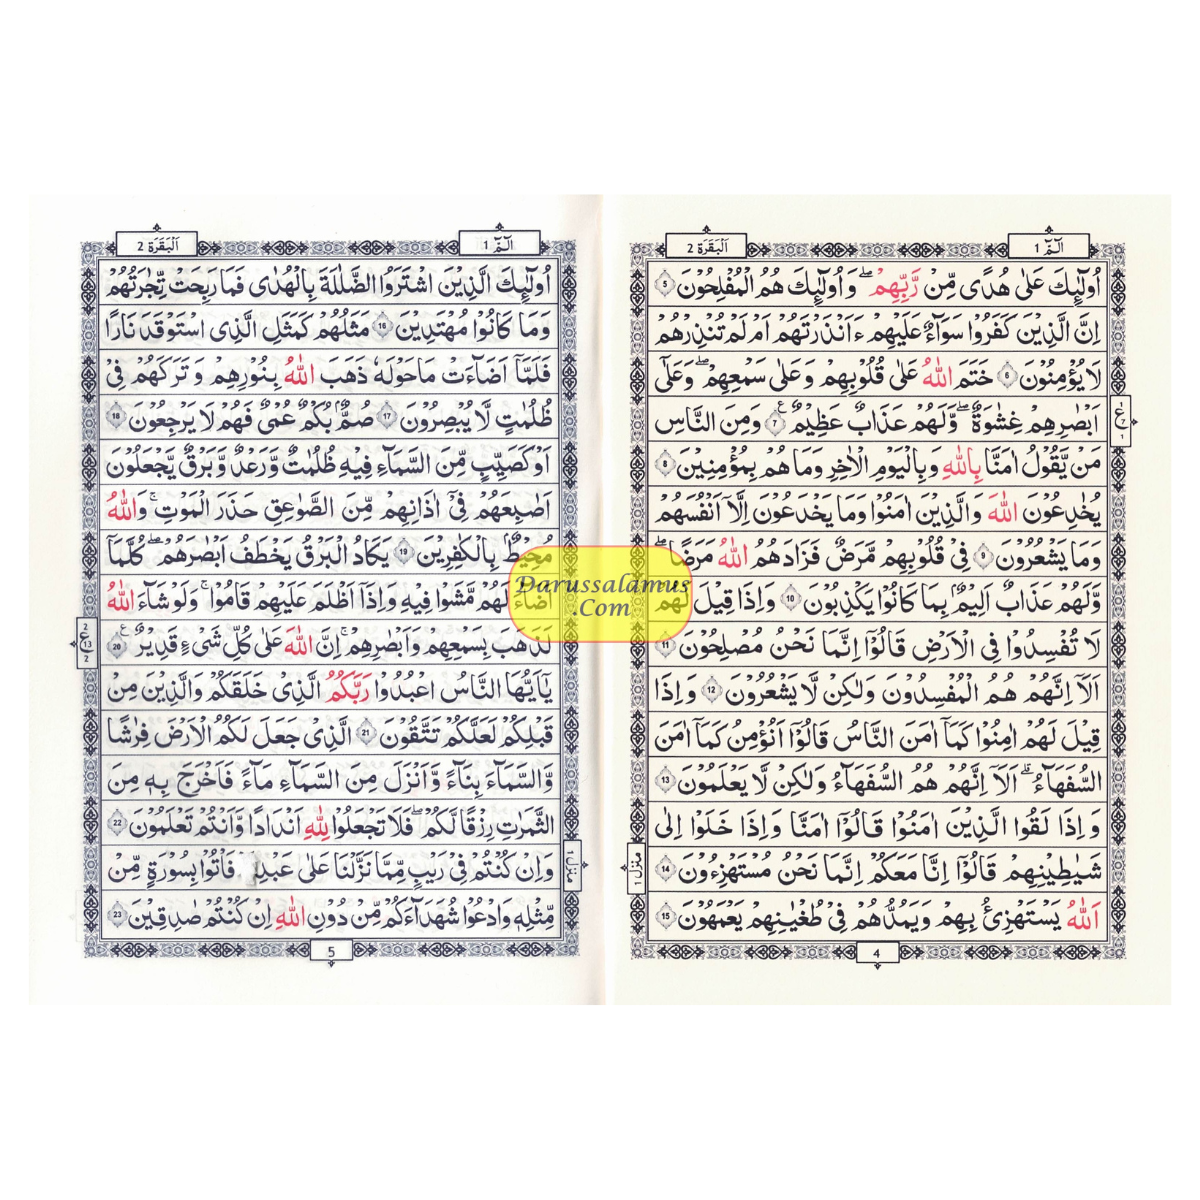 الٓمّٓ 1
اَلْبَقَرَة 2
اُولٰٓئِكَ عَلٰى هُدًى مِّنْ رَّبِّهِمْ ۖ وَاُولٰٓئِكَ هُمُ الْمُفْلِحُوْنَ 5
اِنَّ الَّذِيْنَ كَفَرُوْا سَوَآءٌ عَلَيْهِمْ ءَاَنْذَرْتَهُمْ اَمْ لَمْ تُنْذِرْهُمْ
لَا يُؤْمِنُوْنَ 6 خَتَمَ اللّٰهُ عَلٰى قُلُوْبِهِمْ وَعَلٰى سَمْعِهِمْ ۖ وَعَلٰٓى
اَبْصٰرِهِمْ غِشٰوَةٌ ۖ وَّلَهُمْ عَذَابٌ عَظِيْمٌ 7 وَمِنَ النَّاسِ
مَنْ يَّقُوْلُ اٰمَنَّا بِاللّٰهِ وَبِالْيَوْمِ الْاٰخِرِ وَمَا هُمْ بِمُؤْمِنِيْنَ 8
يُخٰدِعُوْنَ اللّٰهَ وَالَّذِيْنَ اٰمَنُوْا وَمَا يَخْدَعُوْنَ اِلَّآ اَنْفُسَهُمْ
وَمَا يَشْعُرُوْنَ 9 فِيْ قُلُوْبِهِمْ مَّرَضٌ فَزَادَهُمُ اللّٰهُ مَرَضًا ۖ
وَّلَهُمْ عَذَابٌ اَلِيْمٌ بِمَا كَانُوْا يَكْذِبُوْنَ 10 وَاِذَا قِيْلَ لَهُمْ
لَا تُفْسِدُوْا فِى الْاَرْضِ قَالُوْٓا اِنَّمَا نَحْنُ مُصْلِحُوْنَ 11
اَلَآ اِنَّهُمْ هُمُ الْمُفْسِدُوْنَ وَلٰكِنْ لَّا يَشْعُرُوْنَ 12 وَاِذَا
قِيْلَ لَهُمْ اٰمِنُوْا كَمَآ اٰمَنَ النَّاسُ قَالُوْٓا اَنُؤْمِنُ كَمَآ اٰمَنَ
السُّفَهَآءُ ۗ اَلَآ اِنَّهُمْ هُمُ السُّفَهَآءُ وَلٰكِنْ لَّا يَعْلَمُوْنَ 13
وَاِذَا لَقُوا الَّذِيْنَ اٰمَنُوْا قَالُوْٓا اٰمَنَّا وَاِذَا خَلَوْا اِلٰى
شَيٰطِيْنِهِمْ قَالُوْٓا اِنَّا مَعَكُمْ اِنَّمَا نَحْنُ مُسْتَهْزِءُوْنَ 14
اَللّٰهُ يَسْتَهْزِئُ بِهِمْ وَيَمُدُّهُمْ فِيْ طُغْيٰنِهِمْ يَعْمَهُوْنَ 15
1 ع 7 1
منزل ١
4
الٓمّٓ 1
اَلْبَقَرَة 2
اُولٰٓئِكَ الَّذِيْنَ اشْتَرَوُا الضَّلٰلَةَ بِالْهُدٰى فَمَا رَبِحَتْ تِّجٰرَتُهُمْ
وَمَا كَانُوْا مُهْتَدِيْنَ 16 مَثَلُهُمْ كَمَثَلِ الَّذِى اسْتَوْقَدَ نَارًا
فَلَمَّآ اَضَآءَتْ مَا حَوْلَهٗ ذَهَبَ اللّٰهُ بِنُوْرِهِمْ وَتَرَكَهُمْ فِيْ
ظُلُمٰتٍ لَّا يُبْصِرُوْنَ 17 صُمٌّۢ بُكْمٌ عُمْيٌ فَهُمْ لَا يَرْجِعُوْنَ 18
اَوْ كَصَيِّبٍ مِّنَ السَّمَآءِ فِيْهِ ظُلُمٰتٌ وَّرَعْدٌ وَّبَرْقٌ يَّجْعَلُوْنَ
اَصٰبِعَهُمْ فِيْٓ اٰذَانِهِمْ مِّنَ الصَّوَاعِقِ حَذَرَ الْمَوْتِ ۚ وَاللّٰهُ
مُحِيْطٌۢ بِالْكٰفِرِيْنَ 19 يَكَادُ الْبَرْقُ يَخْطَفُ اَبْصٰرَهُمْ ۖ كُلَّمَآ
اَضَآءَ لَهُمْ مَّشَوْا فِيْهِ وَاِذَآ اَظْلَمَ عَلَيْهِمْ قَامُوْا ۚ وَلَوْ شَآءَ اللّٰهُ
لَذَهَبَ بِسَمْعِهِمْ وَاَبْصٰرِهِمْ ۚ اِنَّ اللّٰهَ عَلٰى كُلِّ شَيْءٍ قَدِيْرٌ 20
يٰٓاَيُّهَا النَّاسُ اعْبُدُوْا رَبَّكُمُ الَّذِيْ خَلَقَكُمْ وَالَّذِيْنَ مِنْ
قَبْلِكُمْ لَعَلَّكُمْ تَتَّقُوْنَ 21 الَّذِيْ جَعَلَ لَكُمُ الْاَرْضَ فِرٰشًا
وَّالسَّمَآءَ بِنَآءً وَّاَنْزَلَ مِنَ السَّمَآءِ مَآءً فَاَخْرَجَ بِهٖ مِنَ
الثَّمَرٰتِ رِزْقًا لَّكُمْ ۖ فَلَا تَجْعَلُوْا لِلّٰهِ اَنْدَادًا وَّاَنْتُمْ تَعْلَمُوْنَ 22
وَاِنْ كُنْتُمْ فِيْ رَيْبٍ مِّمَّا نَزَّلْنَا عَلٰى عَبْدِنَا فَاْتُوْا بِسُوْرَةٍ مِّنْ
مِّثْلِهٖ وَادْعُوْا شُهَدَآءَكُمْ مِّنْ دُوْنِ اللّٰهِ اِنْ كُنْتُمْ صٰدِقِيْنَ 23
2 ع 13 2
منزل ١
5
Darussalamus
.Com